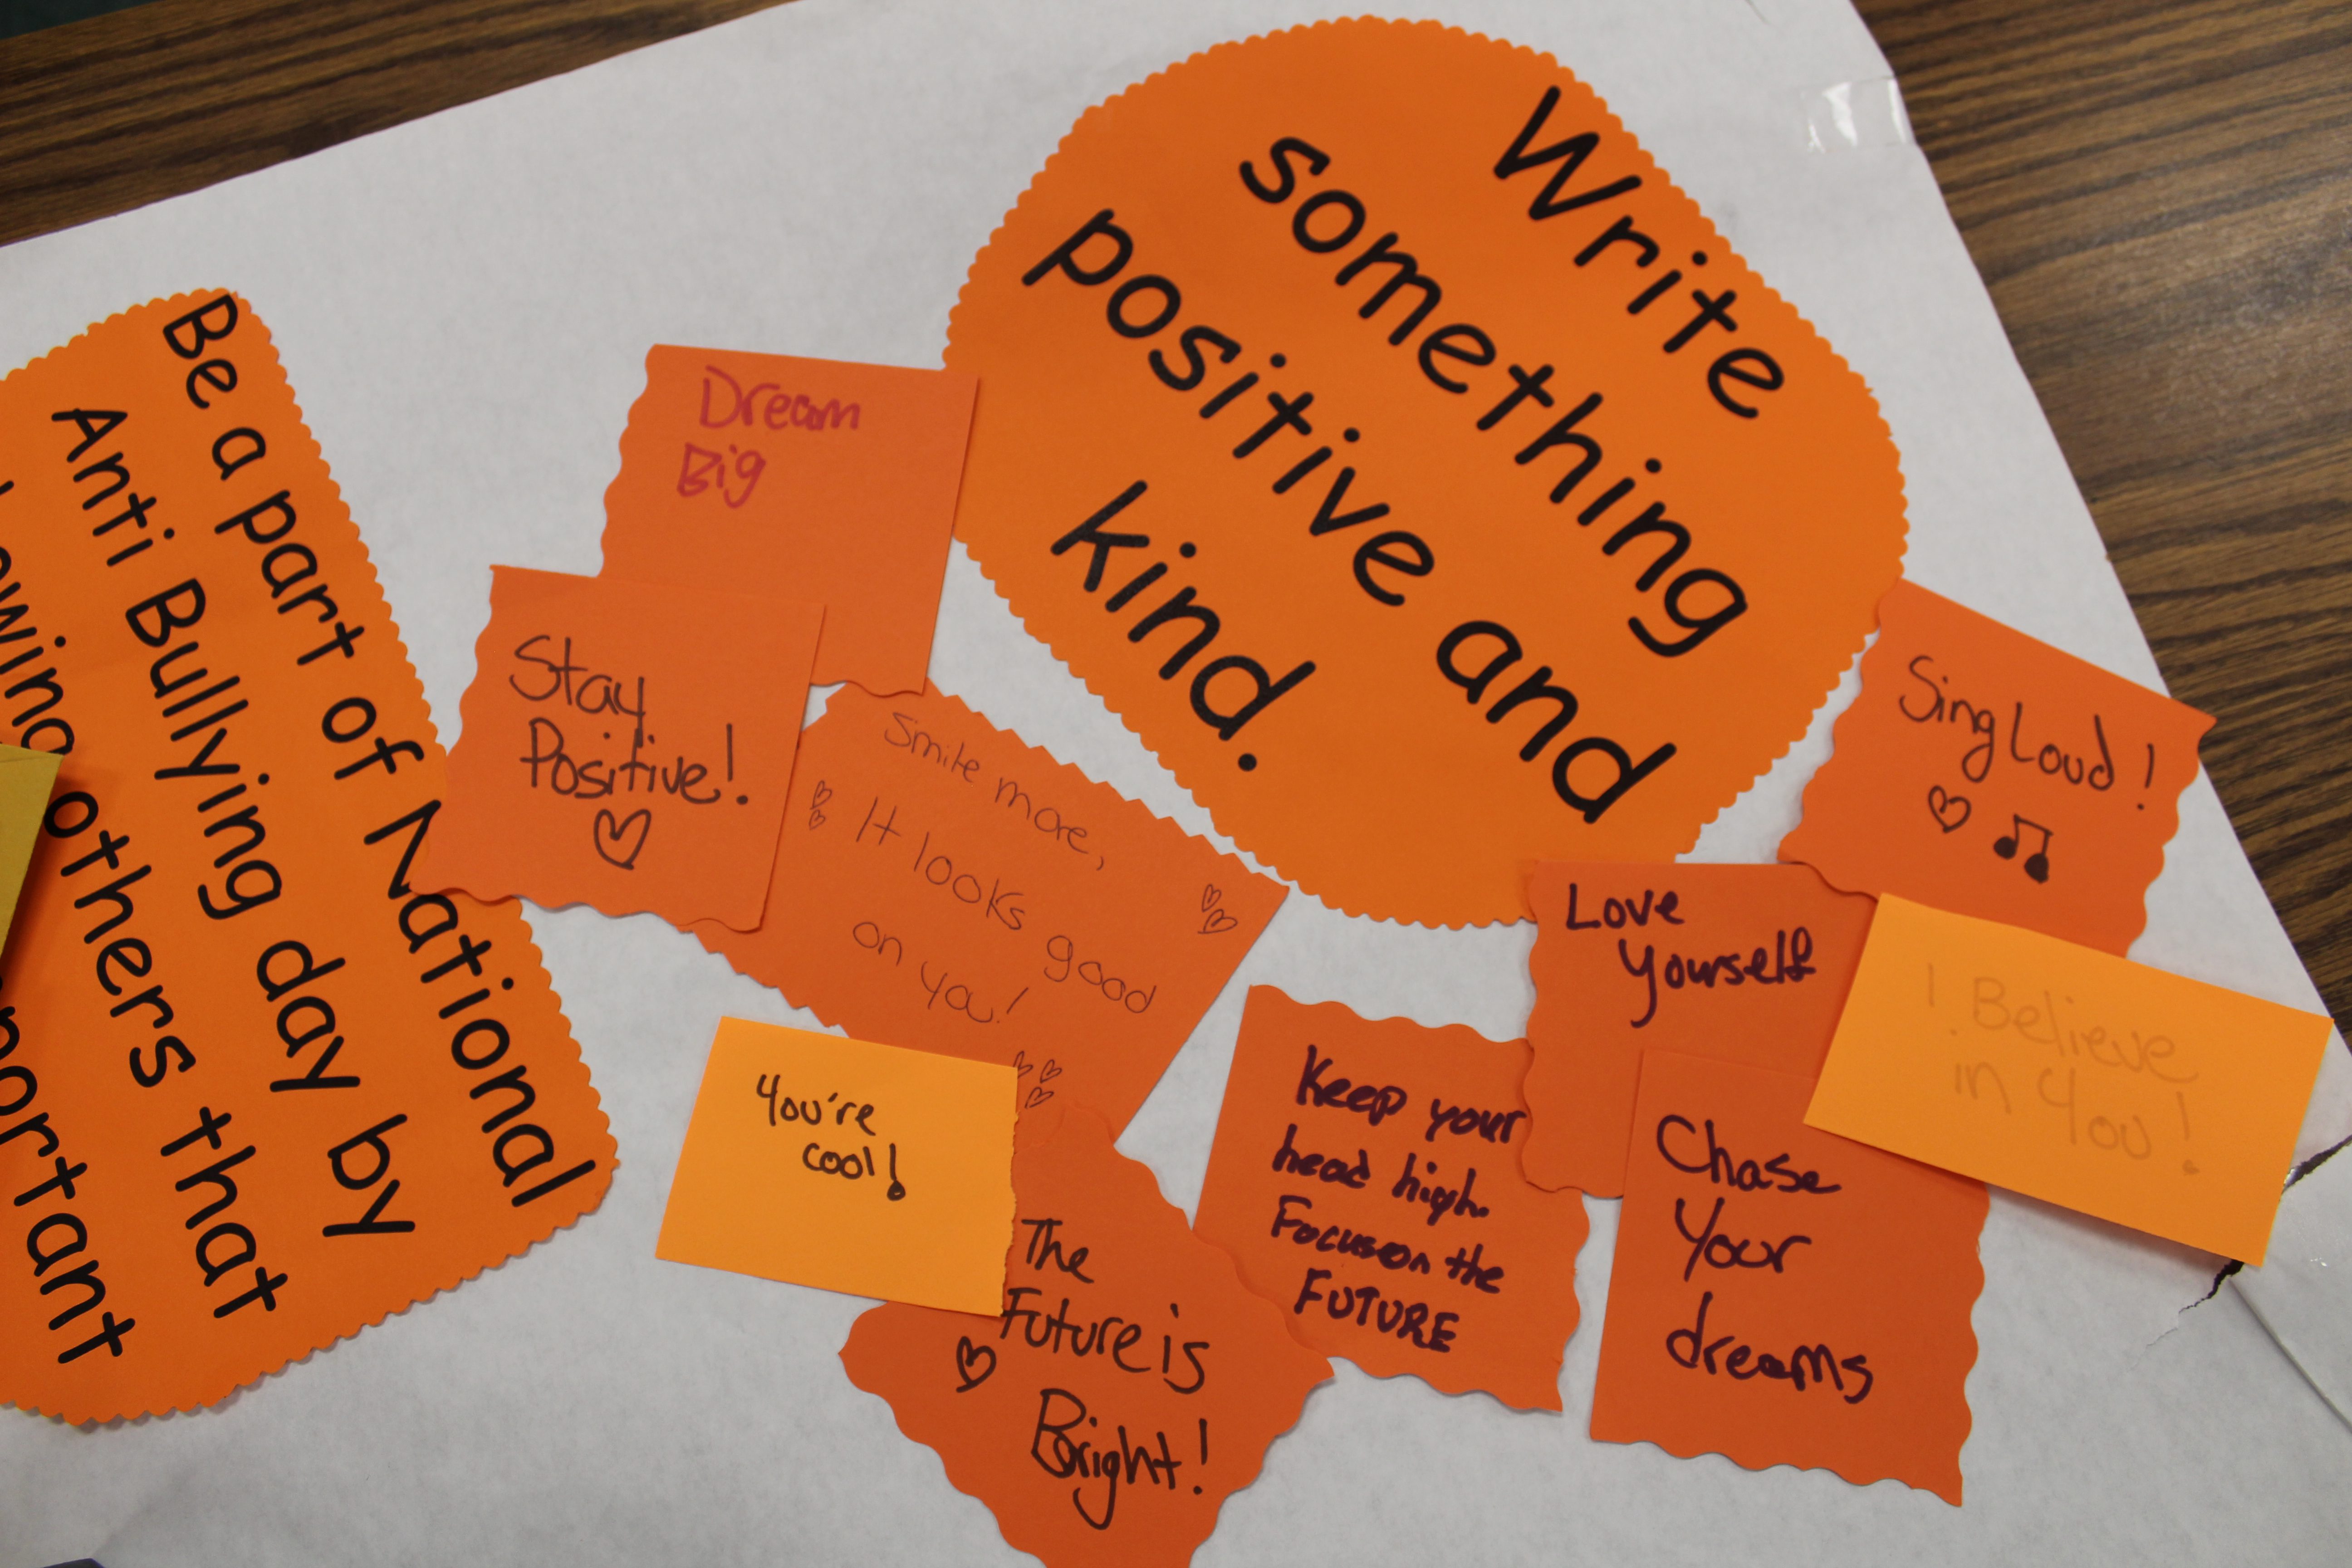 Write
something
positive and
kind.
Be a part of National
Anti Bullying day by
others that
Dream
Big
Stay
Positive!
Smile more,
It looks good
on you!
You're
cool!
The
Future is
Bright!
Keep your
head high.
Focus on the
FUTURE
Love
Yourself
Sing Loud!
I Believe
in You!
Chase
Your
dreams